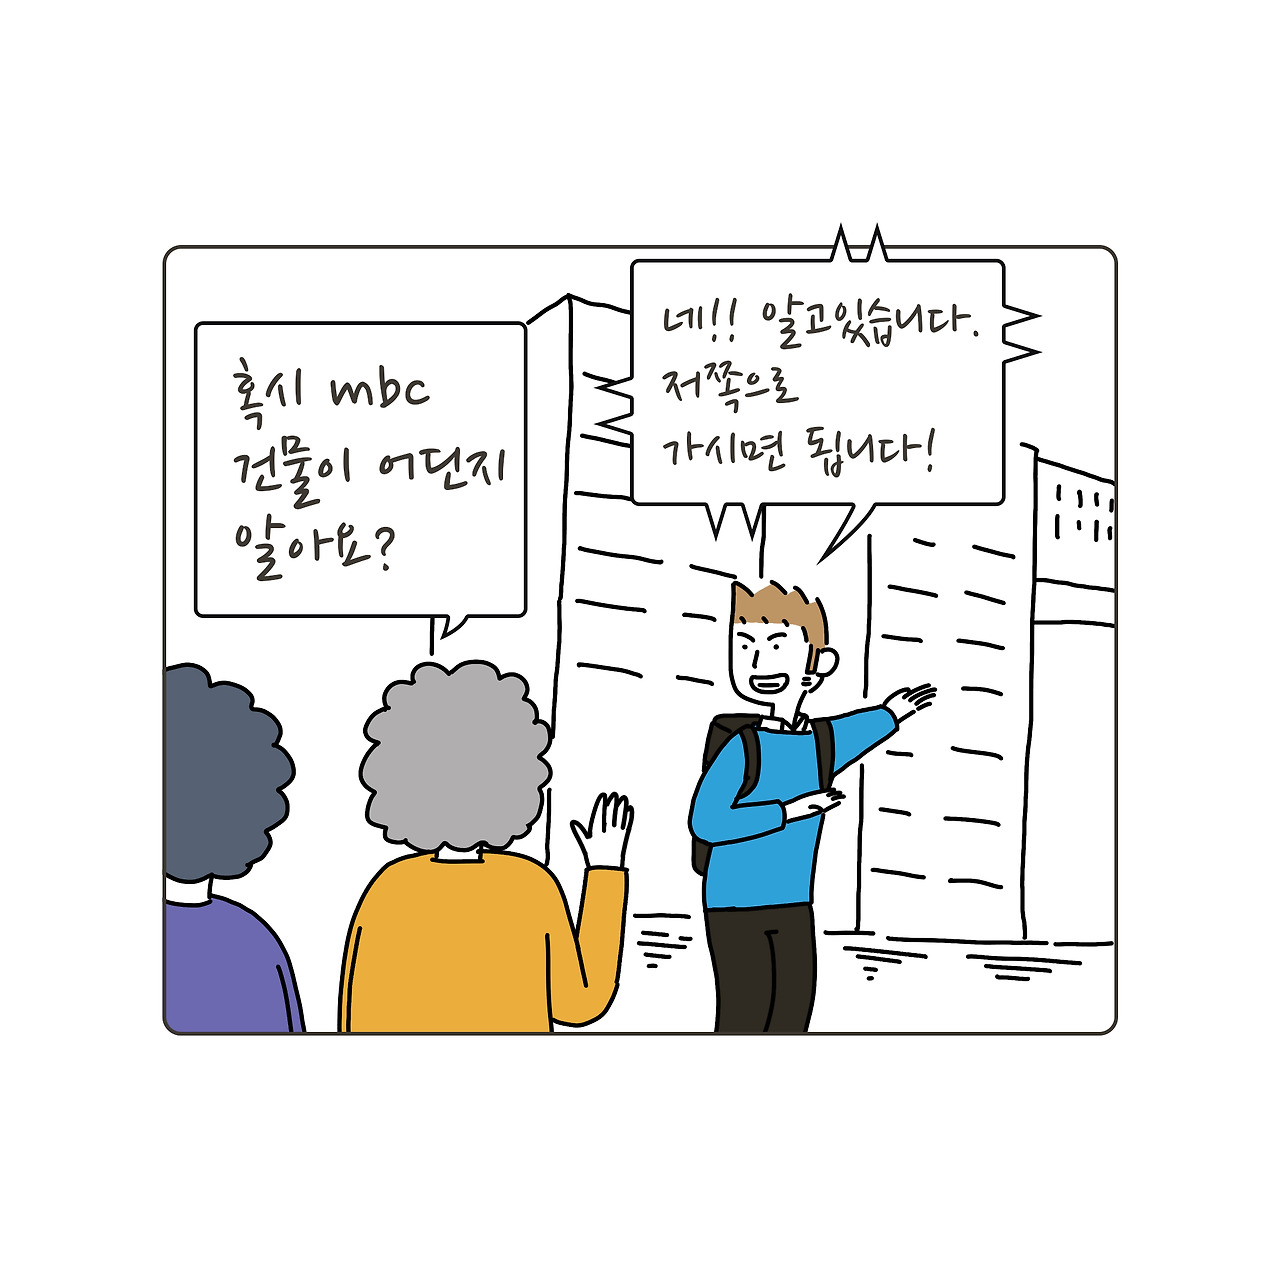 혹시 mbc
건물이 어딘지
알아요?
네!! 알고있습니다.
저쪽으로
가시면 됩니다!